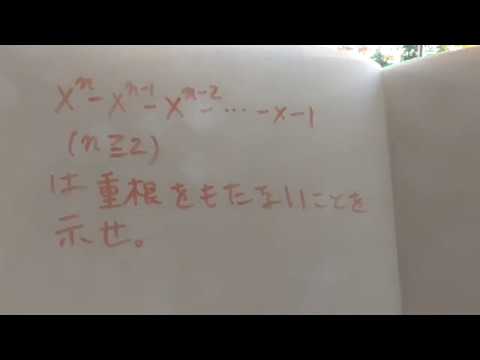 xⁿ-xⁿ⁻¹-xⁿ⁻²-…-x-1
(n≧2)
は重根をもたないことを
示せ。